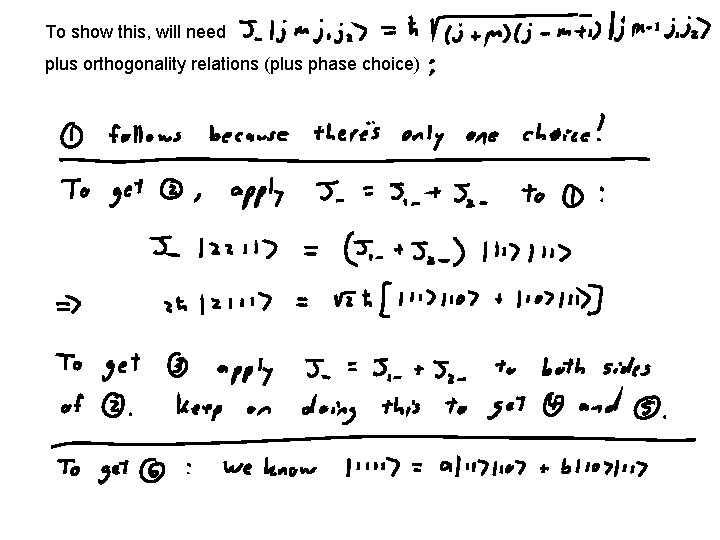 To show this, will need J_ |j m j₁ j₂> = ħ √(j+m)(j-m+1) |j m-1 j₁ j₂>
plus orthogonality relations (plus phase choice) ;
① follows because there's only one choice!
To get ②, apply J_ = J₁_ + J₂_ to ① :
J_ |2 2 1 1> = (J₁_ + J₂_) |1 1>|1 1>
=> 2ħ |2 1 1 1> = √2 ħ [|1 1>|1 0> + |1 0>|1 1>]
To get ③ apply J_ = J₁_ + J₂_ to both sides
of ②. Keep on doing this to get ④ and ⑤.
To get ⑥ : we know |1 1 1 1> = a|1 1>|1 0> + b|1 0>|1 1>